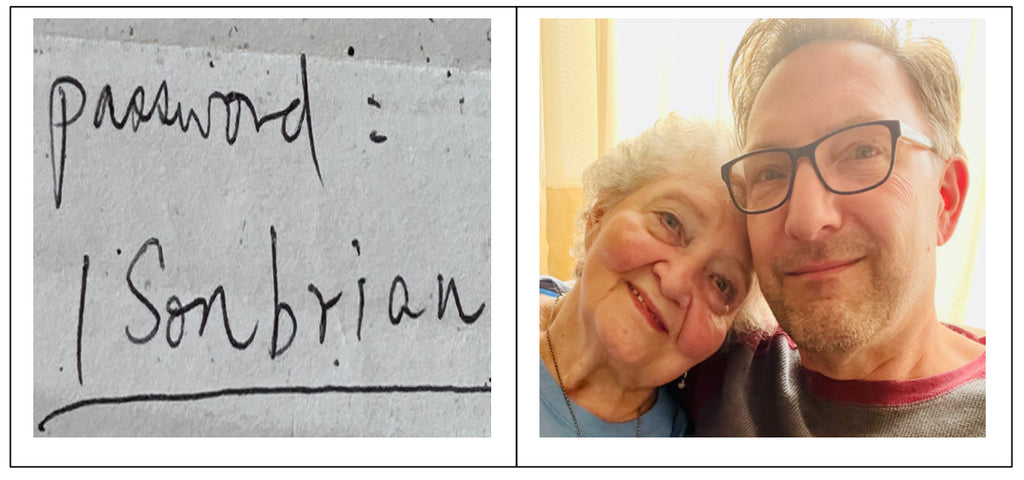 password :
1Sonbrian